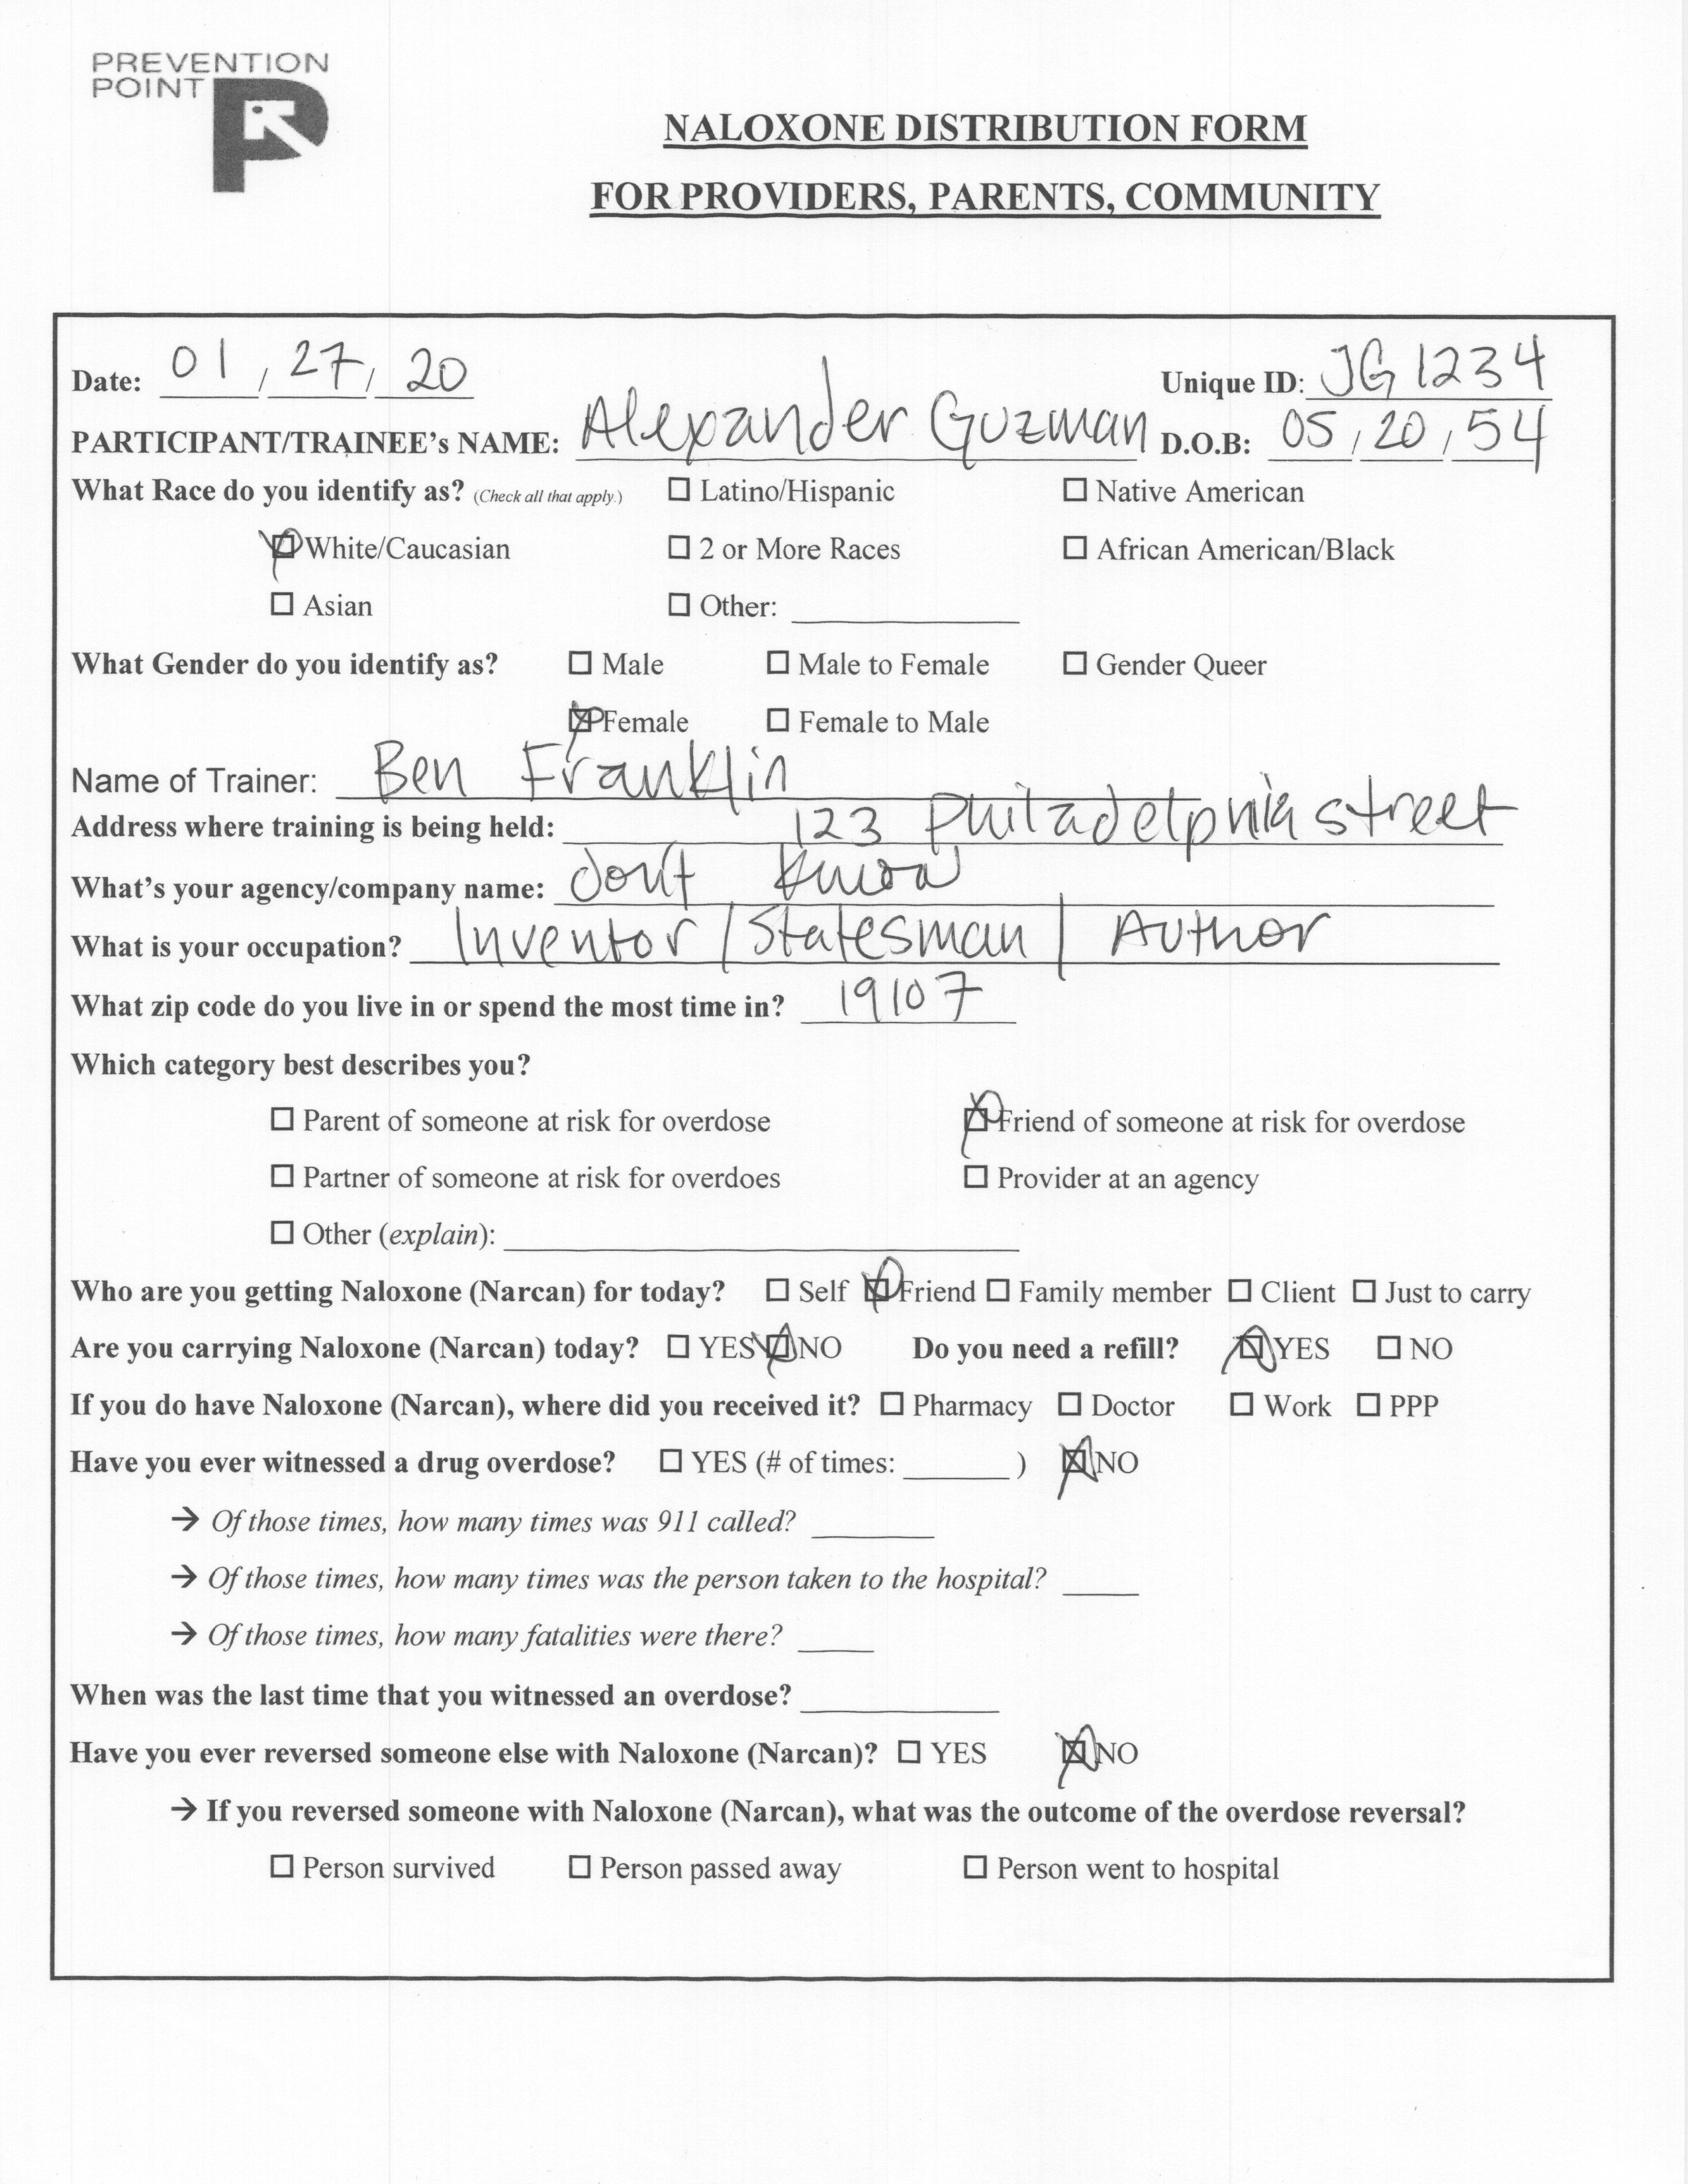 PREVENTION
POINT
NALOXONE DISTRIBUTION FORM
FOR PROVIDERS, PARENTS, COMMUNITY
Date: 01 / 27 / 20 Unique ID: JG1234
PARTICIPANT/TRAINEE's NAME: Alexander Guzman D.O.B: 05 / 20 / 54
What Race do you identify as? (Check all that apply.) ☐ Latino/Hispanic ☐ Native American
☒ White/Caucasian ☐ 2 or More Races ☐ African American/Black
☐ Asian ☐ Other: ____
What Gender do you identify as? ☐ Male ☐ Male to Female ☐ Gender Queer
☒ Female ☐ Female to Male
Name of Trainer: Ben Franklin
Address where training is being held: 123 Philadelphia street
What's your agency/company name: don't know
What is your occupation? Inventor / Statesman / Author
What zip code do you live in or spend the most time in? 19107
Which category best describes you?
☐ Parent of someone at risk for overdose ☒ Friend of someone at risk for overdose
☐ Partner of someone at risk for overdoes ☐ Provider at an agency
☐ Other (explain): ____
Who are you getting Naloxone (Narcan) for today? ☐ Self ☒ Friend ☐ Family member ☐ Client ☐ Just to carry
Are you carrying Naloxone (Narcan) today? ☐ YES ☒ NO Do you need a refill? ☒ YES ☐ NO
If you do have Naloxone (Narcan), where did you received it? ☐ Pharmacy ☐ Doctor ☐ Work ☐ PPP
Have you ever witnessed a drug overdose? ☐ YES (# of times: ____ ) ☒ NO
→ Of those times, how many times was 911 called? ____
→ Of those times, how many times was the person taken to the hospital? ____
→ Of those times, how many fatalities were there? ____
When was the last time that you witnessed an overdose? ____
Have you ever reversed someone else with Naloxone (Narcan)? ☐ YES ☒ NO
→ If you reversed someone with Naloxone (Narcan), what was the outcome of the overdose reversal?
☐ Person survived ☐ Person passed away ☐ Person went to hospital